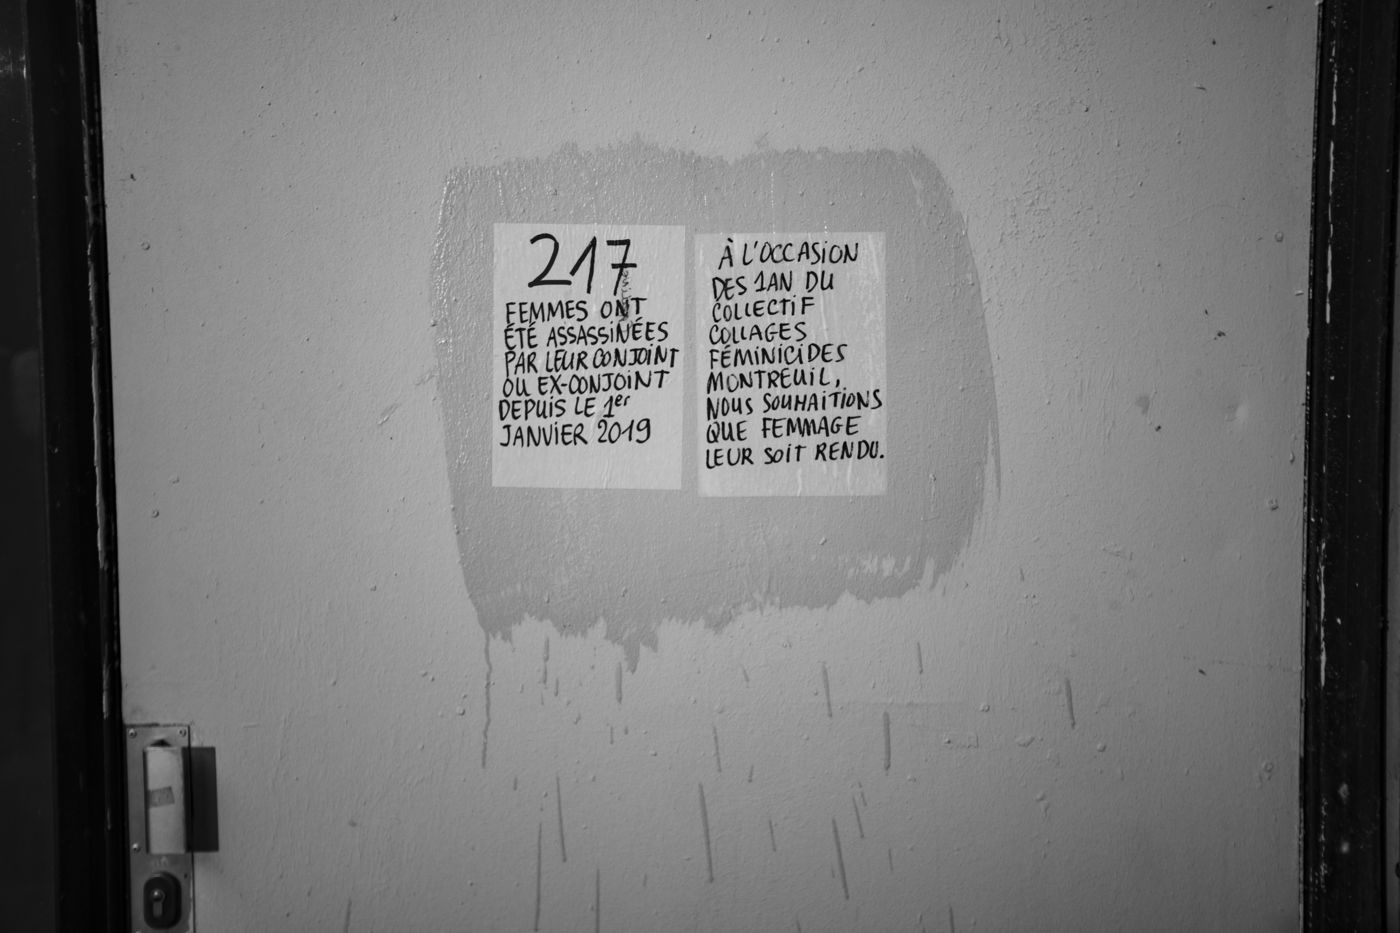 217
FEMMES ONT
ÉTÉ ASSASSINÉES
PAR LEUR CONJOINT
OU EX-CONJOINT
DEPUIS LE 1er
JANVIER 2019
À L'OCCASION
DES 1AN DU
COLLECTIF
COLLAGES
FÉMINICIDES
MONTREUIL,
NOUS SOUHAITIONS
QUE FEMMAGE
LEUR SOIT RENDU.